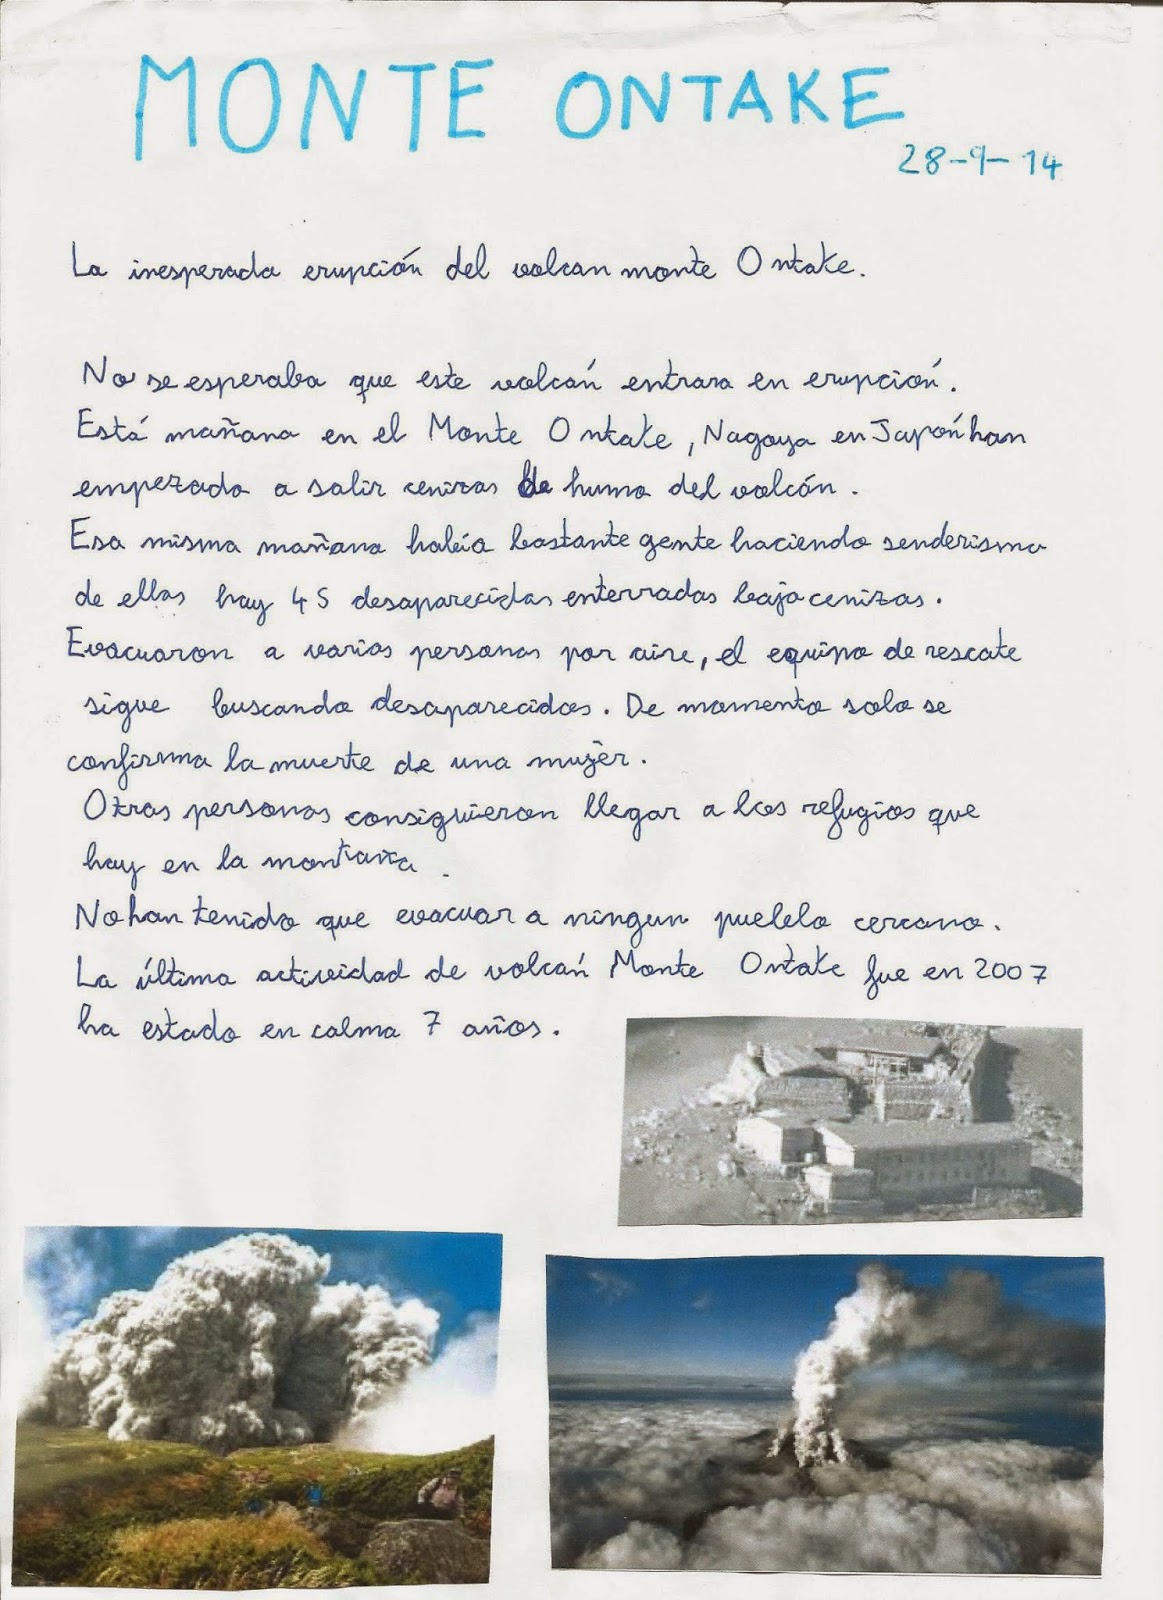 MONTE ONTAKE
28-9-14
La inesperada erupción del volcan monte Ontake.
No se esperaba que este volcán entrara en erupción.
Está mañana en el Monte Ontake, Nagoya en Japón han
empezado a salir cenizas de humo del volcán.
Esa misma mañana había bastante gente haciendo senderismo
de ellas hay 45 desaparecidas enterradas bajo cenizas.
Evacuaron a varias personas por aire, el equipo de rescate
sigue buscando desaparecidos. De momento solo se
confirma la muerte de una mujer.
Otras personas consiguieron llegar a los refugios que
hay en la montaña.
No han tenido que evacuar a ningun pueblo cercano.
La última actividad de volcán Monte Ontake fue en 2007
ha estado en calma 7 años.